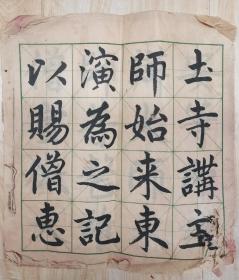 土寺講
師始来東
演為之記
以賜僧惠